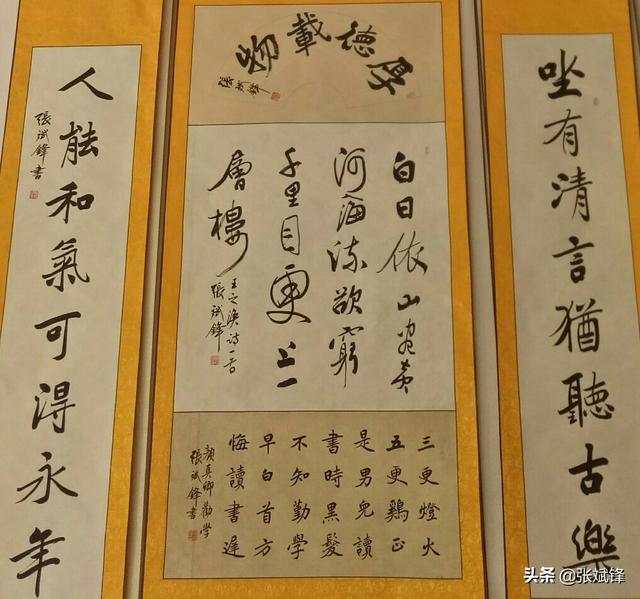 坐有清言猶聽古樂
厚德載物
張斌鋒
白日依山尽黄
河海流欲窮
千里目更上一
層樓
王之渙詩一首
張斌鋒
三更燈火
五更鷄正
是男兒讀
書時黑髮
不知勤學
早白首方
悔讀書遲
顏真卿勸學
張斌鋒書
人能和氣可得永年
張斌鋒書
头条 @张斌锋